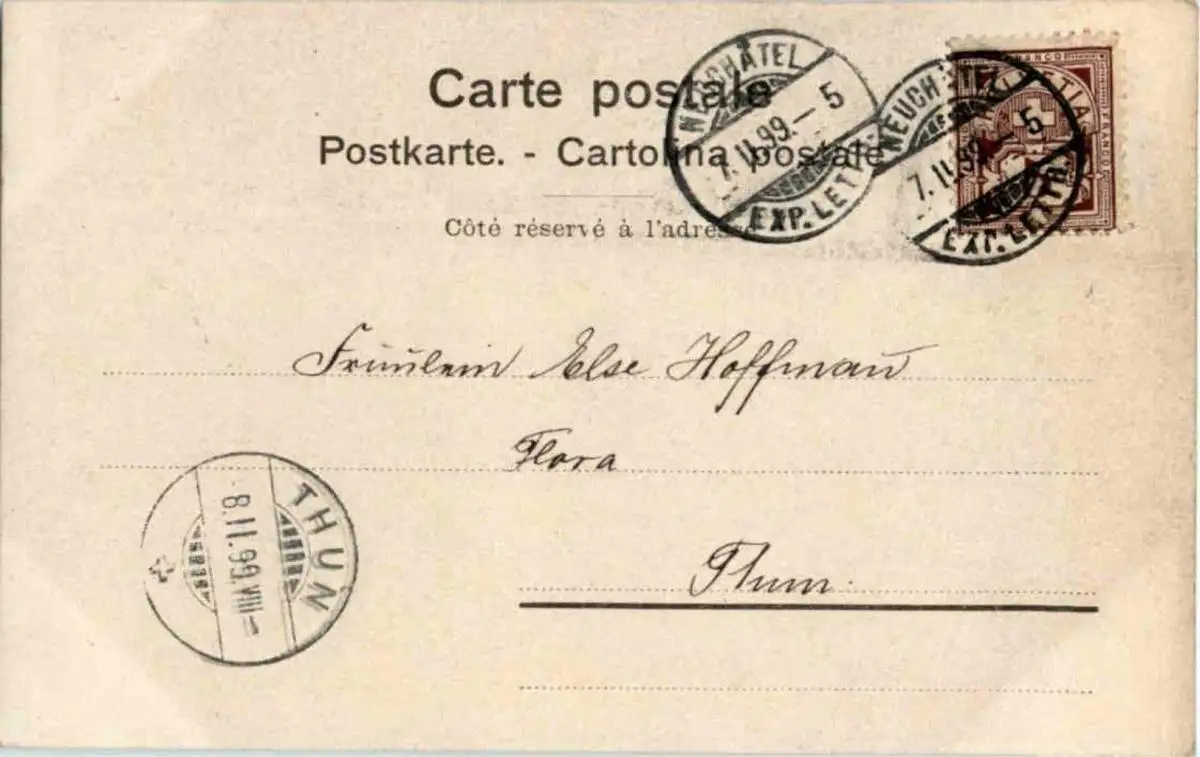 Carte postale
Postkarte. - Cartolina postale
Côté réservé à l'adresse
NEUCHÂTEL
7.II.99.-5
EXP. LETTR.
NEUCHÂTEL
7.II.99.-5
EXP. LETTR.
FRANCO
HELVETIA
FRANCO
Fräulein Else Hoffmann
Flora
Thun.
THUN
8.II.99.VIII-